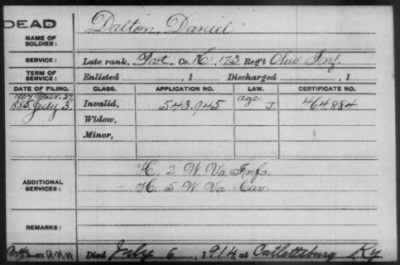 DEAD
Dalton, Daniel
NAME OF SOLDIER:
SERVICE: Late rank, Pvt. Co. K, 173 Reg't Ohio Inf.
TERM OF SERVICE: Enlisted , 1 Discharged , 1
DATE OF FILING. CLASS. APPLICATION NO. LAW. CERTIFICATE NO.
1907
1885 July 3. Invalid, 543.945 age J. 464884
Widow,
Minor,
H. 2 W. Va Inf.
ADDITIONAL SERVICES: H. 5 W. Va Cav.
REMARKS:
Died July 6, 1914 at Catlettsburg Ky